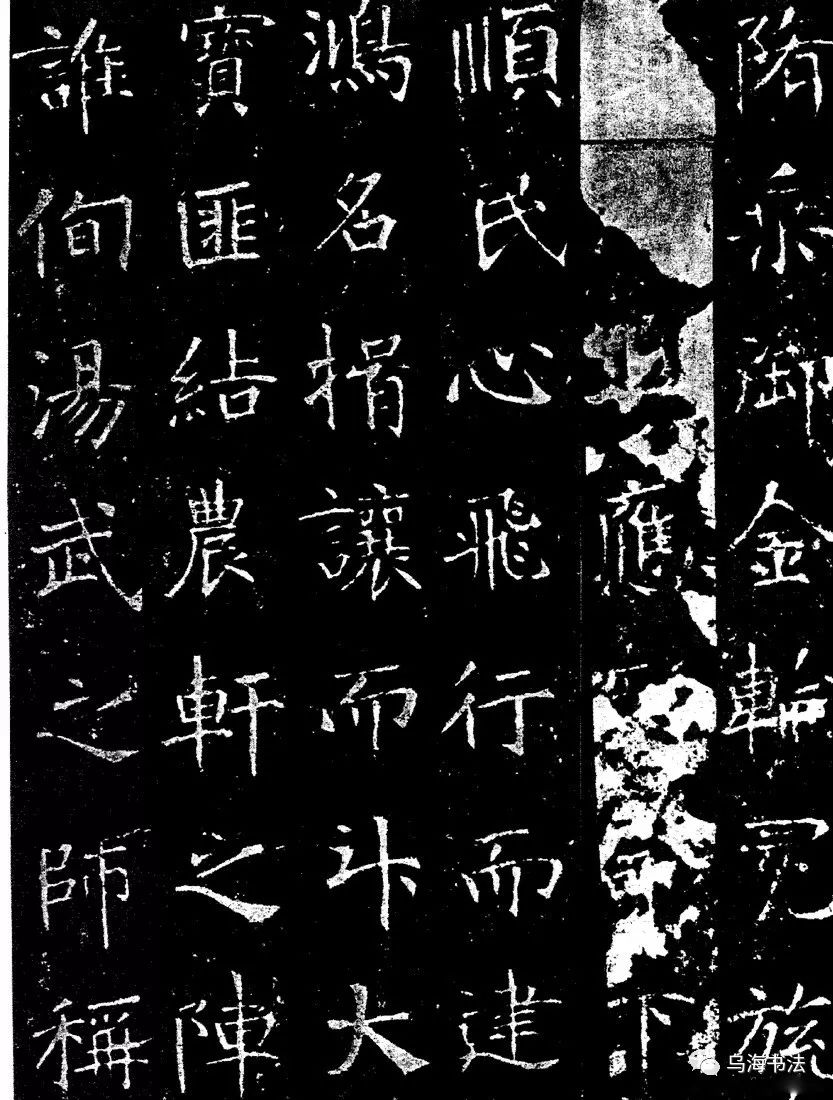 乘御金輪冕旒
應下
順民心飛行而建
鴻名揖讓而升大
寶匪結農軒之陣
誰侚湯武之師稱
乌海书法